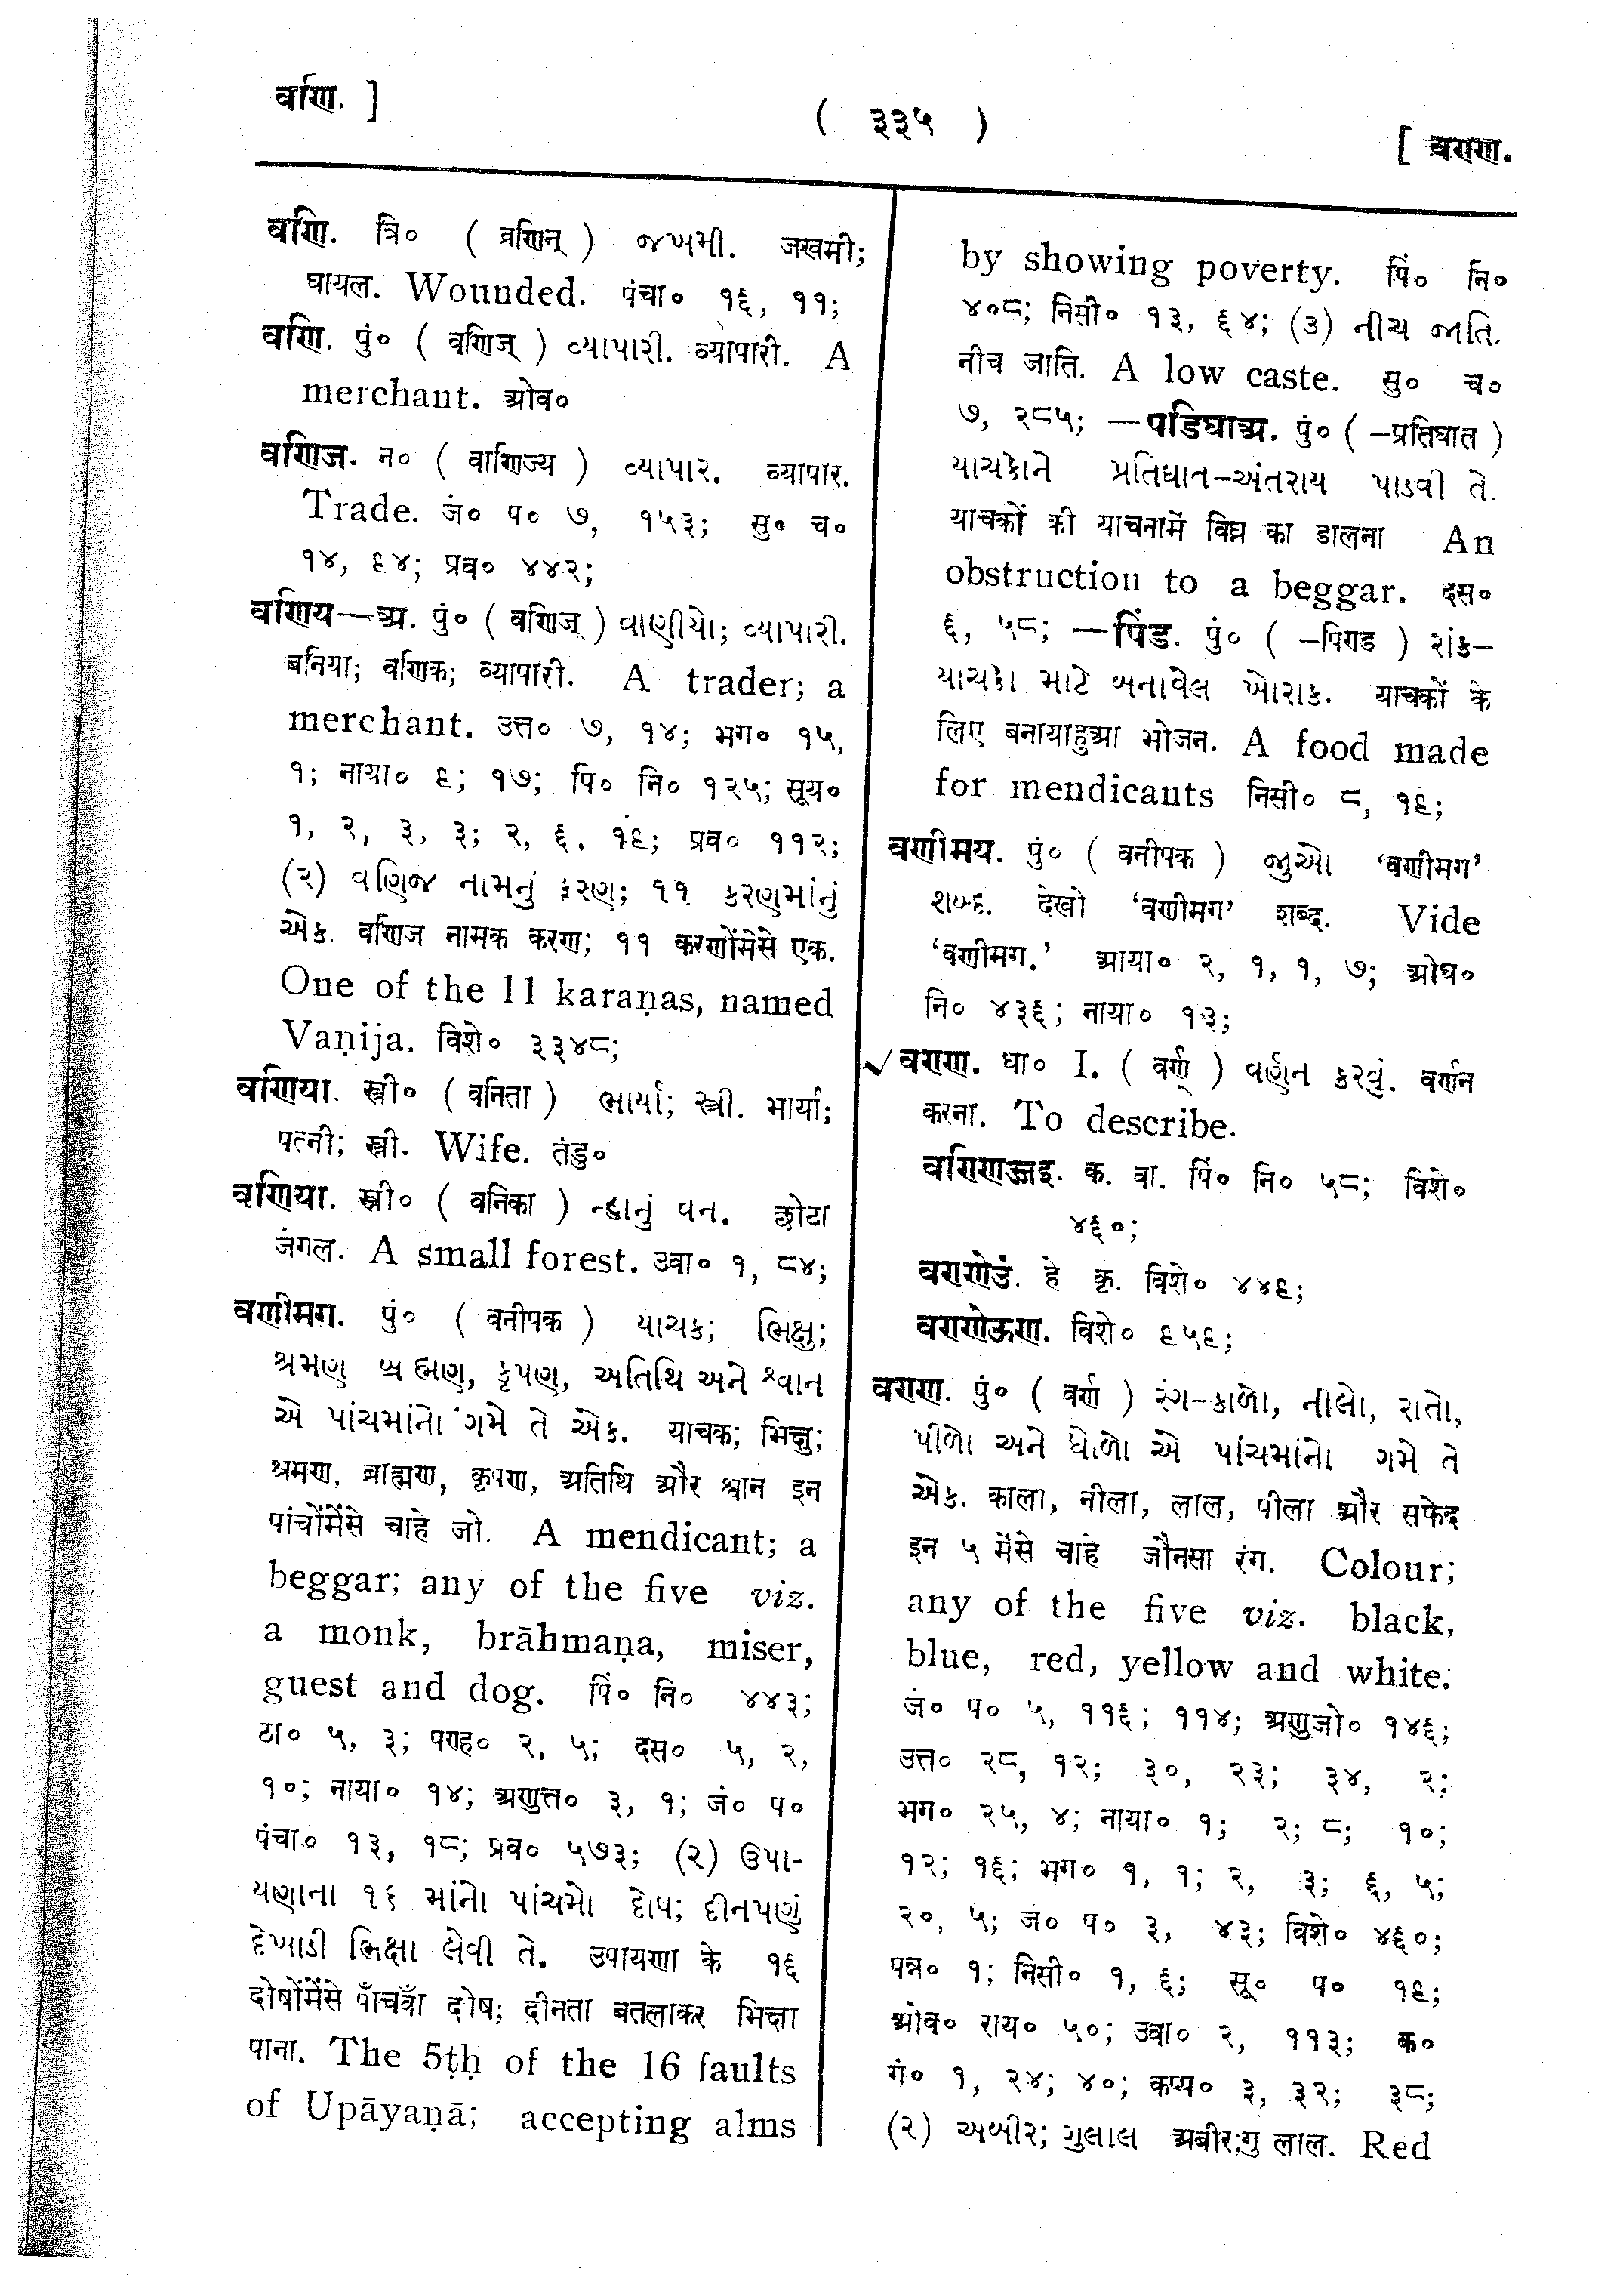 वणि. ]
( ३३५ )
[ वण्ण.
वणि. त्रि० ( व्रणिन् ) જખમી. जखमी;
घायल. Wounded. पंचा० १६, ११;
वणि. पुं० ( वणिज् ) વ્યાપારી. व्यापारी. A
merchant. ओव०
वणिज. न० ( वाणिज्य ) વ્યાપાર. व्यापार.
Trade. जं० प० ७, १५३; सु० च०
१४, ६४; प्रव० ४४२;
वणिय—अ. पुं० ( वणिज् ) વાણીયો; વ્યાપારી.
बनिया; वणिक; व्यापारी. A trader; a
merchant. उत्त० ७, १४; भग० १५,
१; नाया० ९; १७; पि० नि० १२५; सूय०
१, २, ३, ३; २, ६, १९; प्रव० ११२;
(२) વણિજ નામનું કરણ; ૧૧ કરણમાંનું
એક. वणिज नामक करण; ११ करणोंमेंसे एक.
One of the 11 karaṇas, named
Vaṇija. विशे० ३३४८;
वणिया. स्त्री० ( वनिता ) ભાર્યા; સ્ત્રી. भार्या;
पत्नी; स्त्री. Wife. तंडु०
वणिया. स्त्री० ( वनिका ) ન્હાનું વન. छोटा
जंगल. A small forest. उवा० १, ८४;
वणीमग. पुं० ( वनीपक ) યાચક; ભિક્ષુ;
શ્રમણ બ્રહ્મણ, કૃપણ, અતિથિ અને શ્વાન
એ પાંચમાંનો ગમે તે એક. याचक; भिक्षु;
श्रमण, ब्राह्मण, कृपण, अतिथि और श्वान इन
पांचोंमेंसे चाहे जो. A mendicant; a
beggar; any of the five viz.
a monk, brāhmaṇa, miser,
guest and dog. पिं० नि० ४४३;
ठा० ५, ३; पण्ह० २, ५; दस० ५, २,
१०; नाया० १४; अणुत्त० ३, १; जं० प०
पंचा० १३, १८; प्रव० ५७३; (२) ઉપા-
યણાના ૧૬ માંનો પાંચમો દોષ; દીનપણું
દેખાડી ભિક્ષા લેવી તે. उपायणा के १६
दोषोंमेंसे पाँचवाँ दोष; दीनता बतलाकर भिक्षा
पाना. The 5ṭḥ of the 16 faults
of Upāyaṇā; accepting alms
by showing poverty. पिं० नि०
४०८; निसी० १३, ६४; (३) નીચ જાતિ.
नीच जाति. A low caste. सु० च०
७, २८५; —पडिघाअ. पुं० ( -प्रतिघात )
યાચકોને પ્રતિઘાત-અંતરાય પાડવી તે.
याचकों की याचनामें विघ्न का डालना An
obstruction to a beggar. दस०
६, ५८; —पिंड. पुं० ( -पिण्ड ) રાંક-
યાચકો માટે બનાવેલ ખોરાક. याचकों के
लिए बनायाहुआ भोजन. A food made
for mendicants निसी० ८, १९;
वणीमय. पुं० ( वनीपक ) જુઓ ‘वणीमग’
શબ્દ. देखो ‘वणीमग’ शब्द. Vide
‘वणीमग.’ आया० २, १, १, ७; ओघ०
नि० ४३६; नाया० १३;
✓ वण्ण. धा० I. ( वर्ण् ) વર્ણન કરવું. वर्णन
करना. To describe.
वण्णिज्जइ. क. वा. पिं० नि० ५८; विशे०
४६०;
वण्णेउं. हे कृ. विशे० ४४९;
वण्णेऊण. विशे० ९५९;
वण्ण. पुं० ( वर्ण ) રંગ-કાળો, નીલો, રાતો,
પીળો અને ધોળો એ પાંચમાંનો ગમે તે
એક. काला, नीला, लाल, पीला और सफेद
इन ५ मेंसे चाहे जौनसा रंग. Colour;
any of the five viz. black,
blue, red, yellow and white.
जं० प० ५, ११६; ११४; अणुजो० १४६;
उत्त० २८, १२; ३०, २३; ३४, २;
भग० २५, ४; नाया० १; २; ८; १०;
१२; १६; भग० १, १; २, ३; ६, ५;
२०, ५; जं० प० ३, ४३; विशे० ४६०;
पन्न० १; निसी० १, ६; सू० प० १९;
ओव० राय० ५०; उवा० २, ११३; क०
गं० १, २४; ४०; कप्प० ३, ३२; ३८;
(२) અબીર; ગુલાલ अबीर;गु लाल. Red